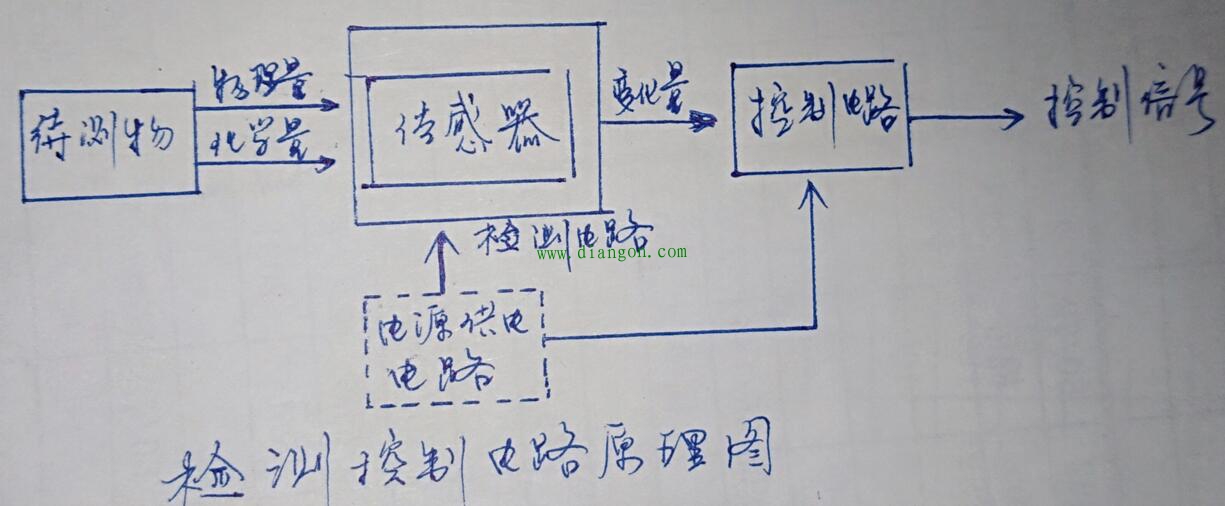 物理量
变化量
待测物
传感器
控制电路
控制信号
化学量
检测电路
www.diangon.com
电源供电
电路
检测控制电路原理图